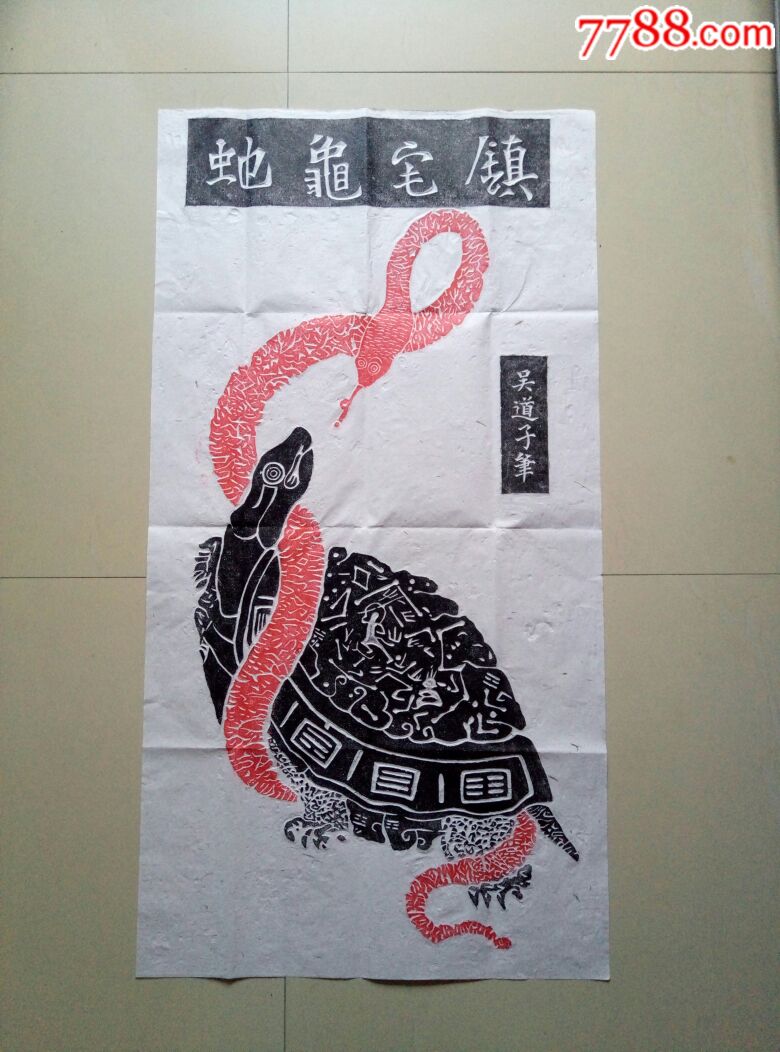 7788.com
鎮宅龜虵
吴道子筆